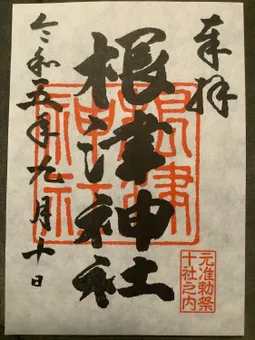 奉拝
根津神社
根津
神社
元准勅祭
十社之内
令和五年九月十日